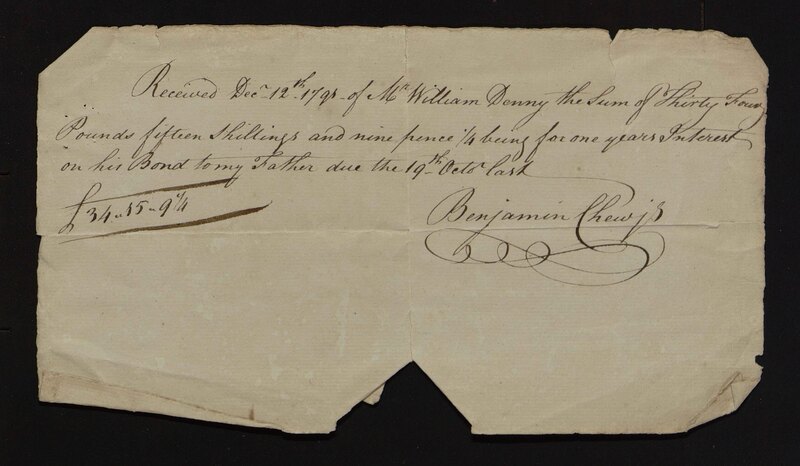 Received Decr 12th 1795 of Mr William Denny the Sum of Thirty Four
Pounds fifteen Shillings and nine pence 1/4 being for one years Interest
on his Bond to my Father due the 19th Octor last
£34-15-9 1/4
Benjamin Chew jr